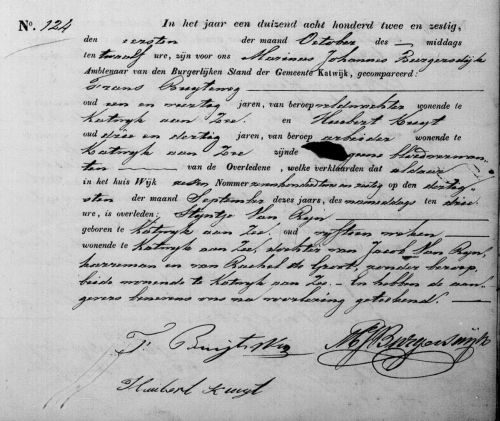 No. 124
In het jaar een duizend acht honderd twee en zestig,
den eersten der maand October des middags
ten twaalf ure, zijn voor ons Marinus Johannes Burgersdijk
Ambtenaar van den Burgerlijken Stand der Gemeente Katwijk, gecompareerd:
Frans Buyteweg
oud een en veertig jaren, van beroep veldwachter wonende te
Katwyk aan Zee. en Huibert Kuyt
oud drie en dertig jaren, van beroep arbeider wonende te
Katwyk aan Zee zijnde geene bloedverwan-
ten van de Overledene, welke verklaarden dat aldaar
in het huis Wijk Nommer en zestig op den dertig-
sten der maand September dezes jaars, des namiddags ten drie
ure, is overleden: Styntje Van Ryn
geboren te Katwyk aan Zee, oud vyftien weken
wonende te Katwyk aan Zee, dochter van Jacob Van Ryn,
en van Rachel de Groot, zonder beroep
beide wonende te Katwyk aan Zee. - En hebben de aan-
gevers benevens ons na voorlezing geteekend.
MJ Burgersdijk
Huibert Kuyt